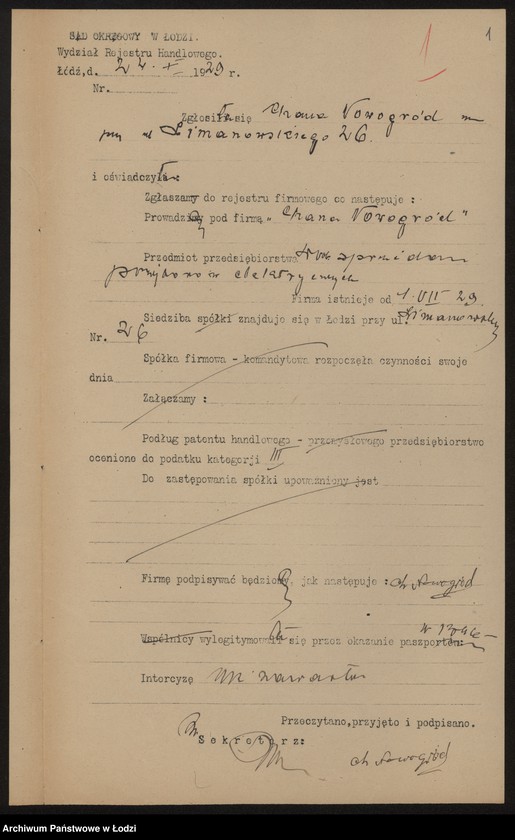 1
1
SĄD OKRĘGOWY W ŁODZI.
Wydział Rejestru Handlowego.
Łódź,d. 24.X 1929 r.
Nr.
Zgłosiła się Chana Nowogród
Limanowskiego 26.
i oświadczyła:
Zgłaszam do rejestru firmowego co następuje :
Prowadzę pod firmą „Chana Nowogród"
Przedmiot przedsiębiorstwa
Firma istnieje od 1.VII 29
Siedziba spółki znajduje się w Łodzi przy ul. Limanowskiego
Nr. 26
Spółka firmowa - komandytowa rozpoczęła czynności swoje
dnia
Załączamy :
Podług patentu handlowego - przemysłowego przedsiębiorstwo
ocenione do podatku kategorji III
Do zastępowania spółki upoważniony jest
Firmę podpisywać będę, jak następuje : Ch Nowogród
Wspólnicy wylegitymowała się przez okazanie paszportu
Intercyzę nie zawarła
Przeczytano,przyjęto i podpisano.
Sekretarz:
Ch Nowogród
Archiwum Państwowe w Łodzi